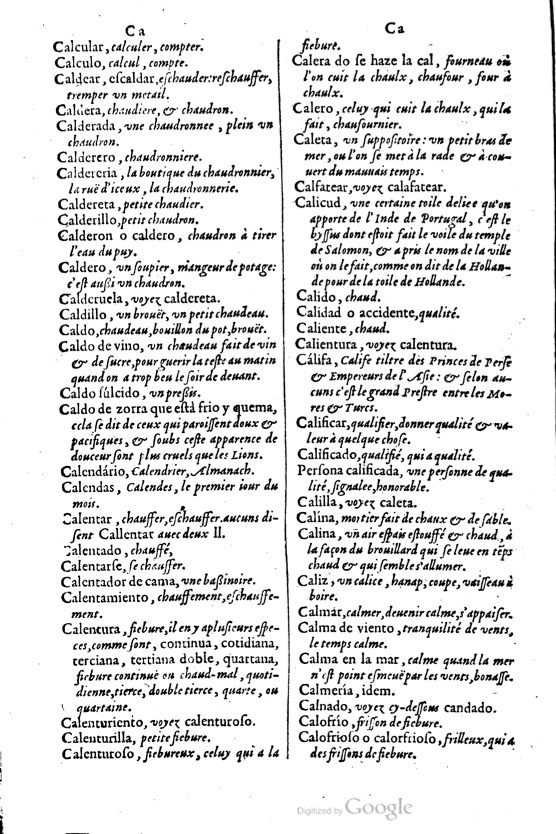 Ca
Calcular, calculer, compter.
Calculo, calcul, compte.
Caldear, escaldar, eschauder: reschauffer,
tremper vn metail.
Caldera, chaudiere, & chaudron.
Calderada, vne chaudronnee, plein vn
chaudron.
Calderero, chaudronniere.
Caldereria, la boutique du chaudronnier,
la ruë d'iceux, la chaudronnerie.
Caldereta, petite chaudier.
Calderillo, petit chaudron.
Calderon o caldero, chaudron à tirer
l'eau du puy.
Caldero, vn soupier, mangeur de potage:
c'est außi vn chaudron.
Calderuela, voyez caldereta.
Caldillo, vn brouët, vn petit chaudeau.
Caldo, chaudeau, bouillon du pot, brouët.
Caldo de vino, vn chaudeau fait de vin
& de sucre, pour guerir la teste au matin
quand on a trop beu le soir de deuant.
Caldo súlcido, vn preßis.
Caldo de zorra que está frio y quema,
cela se dit de ceux qui paroissent doux &
pacifiques, & soubs ceste apparence de
douceur sont plus cruels que les Lions.
Calendário, Calendrier, Almanach.
Calendas, Calendes, le premier iour du
mois.
Calentar, chauffer, eschauffer. aucuns di-
sent Callentar auec deux ll.
Calentado, chauffé,
Calentarse, se chauffer.
Calentador de cama, vne baßinoire.
Calentamiento, chauffement, eschauffe-
ment.
Calentura, fiebure, il en y a plusieurs espe-
ces, comme sont, continua, cotidiana,
terciana, tertiana doble, quartana,
fiebure continuë ou chaud-mal, quoti-
dienne, tierce, double tierce, quarte, ou
quartaine.
Calenturiento, voyez calenturoso.
Calenturilla, petite fiebure.
Calenturoso, fiebureux, celuy qui a la
Ca
fiebure.
Calera do se haze la cal, fourneau où
l'on cuit la chaulx, chaufour, four à
chaulx.
Calero, celuy qui cuit la chaulx, qui la
fait, chaufournier.
Caleta, vn suppositoire: vn petit bras de
mer, ou l'on se met à la rade & à cou-
uert du mauuais temps.
Calfatear, voyez calafatear.
Calicud, vne certaine toile deliee qu'on
apporte de l'Inde de Portugal, c'est le
byssus dont estoit fait le voile du temple
de Salomon, & a pris le nom de la ville
où on le fait, comme on dit de la Hollan-
de pour de la toile de Hollande.
Calido, chaud.
Calidad o accidente, qualité.
Caliente, chaud.
Calientura, voyez calentura.
Cálifa, Calife tiltre des Princes de Perse
& Empereurs de l'Asie: & selon au-
cuns c'est le grand Prestre entre les Mo-
res & Turcs.
Calificar, qualifier, donner qualité & va-
leur à quelque chose.
Calificado, qualifié, qui a qualité.
Persona calificada, vne personne de qua-
lité, signalee, honorable.
Calilla, voyez caleta.
Calina, mortier fait de chaux & de sable.
Calina, vn air espais estouffé & chaud, à
la façon du brouillard qui se leue en tẽps
chaud & qui semble s'allumer.
Caliz, vn calice, hanap, coupe, vaisseau à
boire.
Calmar, calmer, deuenir calme, s'appaiser.
Calma de viento, tranquilité de vents,
le temps calme.
Calma en la mar, calme quand la mer
n'est point esmeuë par les vents, bonasse.
Calmería, idem.
Calnado, voyez cy-dessous candado.
Calofrío, frisson de fiebure.
Calofrioso o calorfrioso, frilleux, qui a
des frissons de fiebure.
Digitized by Google